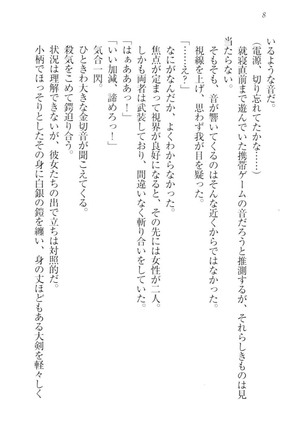 8
いるような音だ。
（電源、切り忘れてたかな……）
就寝直前まで遊んでいた携帯ゲームの音だろうと推測するが、それらしきものは見
当たらない。
そもそも、音が響いてくるのはそんな近くからではなかった。
視線を上げ、思わず我が目を疑った。
「……え？」
なにがなんだか、よくわからなかった。
焦点が定まって視界が良好になると、その先には女性が二人。
しかも両者は武装しており、間違いなく斬り合いをしていた。
「はぁあああっ！」
「いい加減、諦めろっ！」
気合一閃。
ひときわ大きな金切音が聞こえてくる。
殺気をこめて鍔迫り合う両者。
状況は理解できないが、彼女たちの出で立ちは対照的だ。
小柄でほっそりとしたその身に白銀の鎧を纏い、身の丈ほどもある大剣を軽々しく